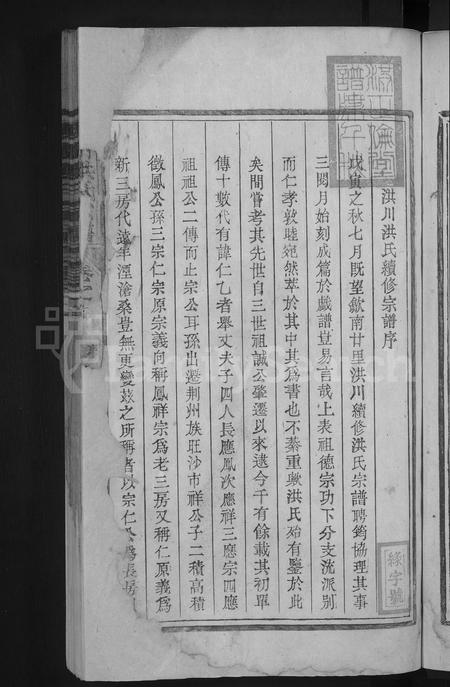 洪川洪氏續修宗譜序
戊寅之秋七月既望歙南廿里洪川續修洪氏宗譜聘筠協理其事
三閱月始刻成篇於戲譜豈易言哉上表祖德宗功下分支流派別
而仁孝敦睦宛然萃於其中其爲書也不綦重歟洪氏始有鑒於此
矣間嘗考其先世自三世祖誠公肇遷以來逮今千有餘載其初單
傳十數代有諱仁乙者舉丈夫子四人長應鳳次應祥三應宗四應
祖祖公二傳而止宗公耳孫出遷荆州族旺沙市祥公子二積高積
徵鳳公孫三宗仁宗原宗義向稱鳳祥宗爲老三房又稱仁原義爲
新三房代遠年湮滄桑豈無更變兹之所稱者以宗仁公爲長房
緣字號